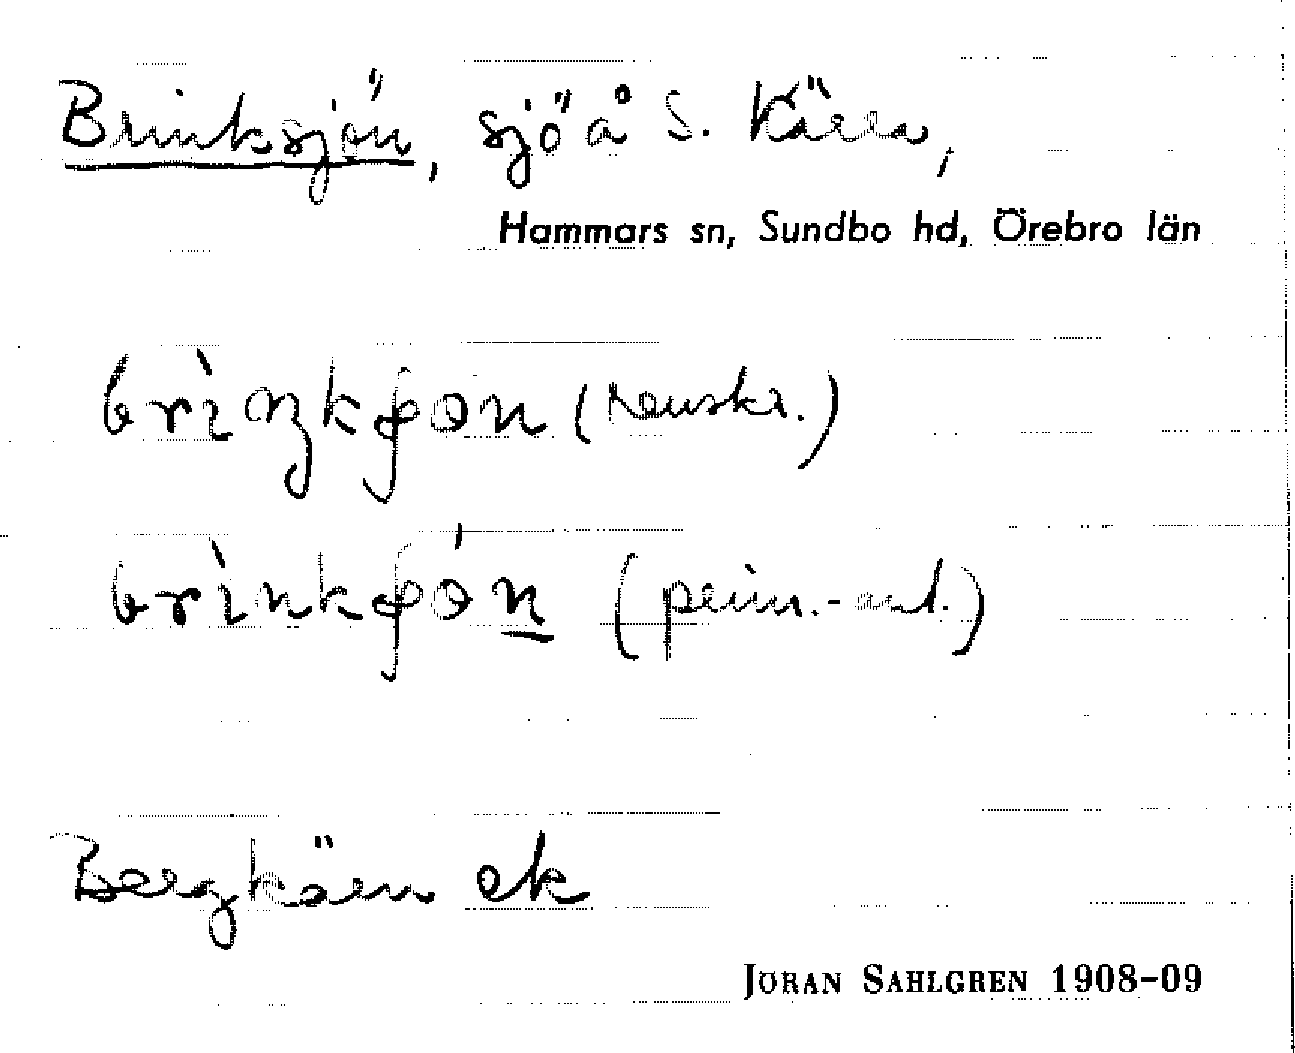 Brinksjön, sjö å S. Kärra,
Hammars sn, Sundbo hd, Örebro län
brìŋkʃɷn (renskr.)
brìnkʃɷ́n (prim.-ant.)
Bergkärn ek
JÖRAN SAHLGREN 1908-09